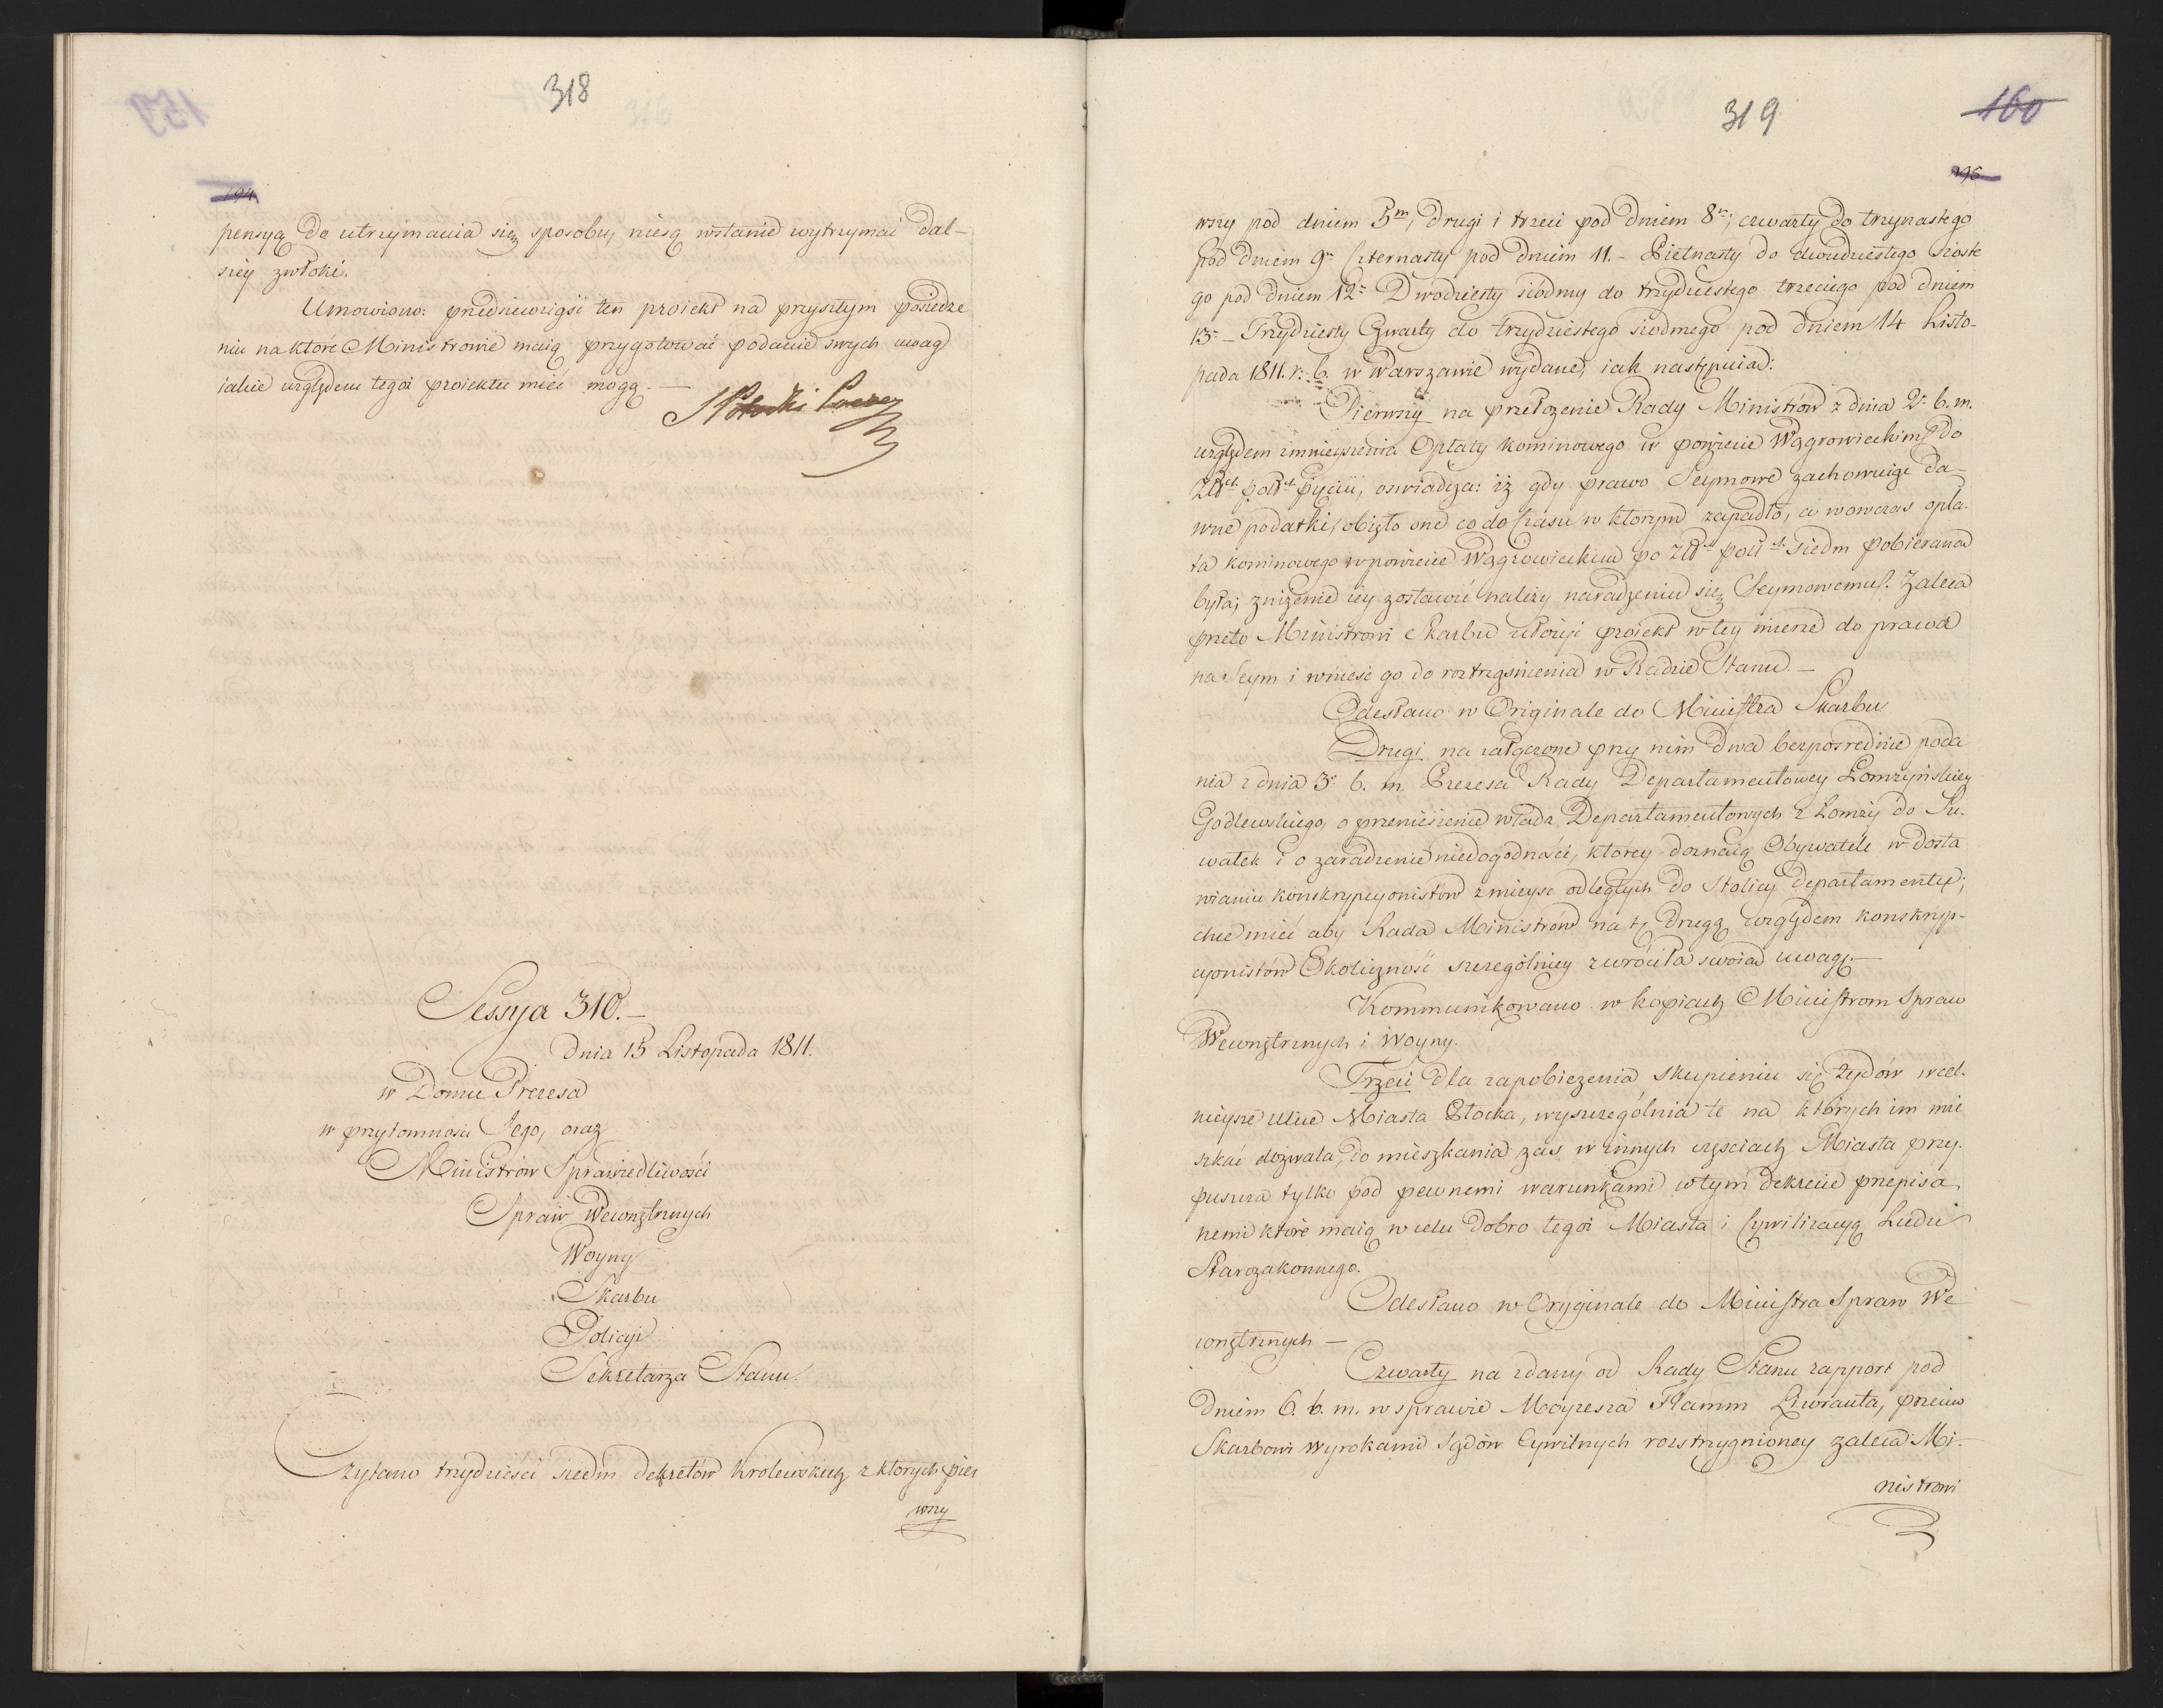 318
194
pensyą do utrzymania się sposobu, niesą wstanie wytrzymać dal-
szey zwłoki.
Umowiono: przedsiewziąść ten proiekt na przyszłym posiedze
niu na ktore Ministrowie maią przygotować podanie swych uwag
iakie względem tegoż proiektu mieć mogą. —
Potocki Prezes
Sessya 310. —
Dnia 15 Listopada 1811.
w Domu Prezesa
w przytomności Jego, oraz
Ministrów Sprawiedliwości
Spraw Wewnętrznych
Woyny
Skarbu
Policyi
Sekretarza Stanu.
Czytano trzydzieści siedm dekretów Krolewskich z ktorych pier
wszy
319
160
195
wszy pod dniem 5m, Drugi i trzeci pod dniem 8m; czwarty do trzynastego
pod dniem 9m Czternasty pod dniem 11. – Pietnasty do dwudziestego szoste
go pod dniem 12m Dwodziesty siodmy do trzydziestego trzeciego pod dniem
13m – Trzydziesty Czwarty do trzydziestego siodmego pod dniem 14 Listo-
pada 1811. r: b. w Warszawie wydane, iak następuią:
Pierwszy na przełożenie Rady Ministrów z dnia 2o b. m.
względem zmnieyszenia Opłaty kominowego w powiecie Wągrowieckim do
Złt pol: pięciu, oswiadcza: iż gdy prawo Seymowe zachowuiąc da-
wne podatki, obięło one co do Czasu w ktorym zapadło, a wowczas opła-
ta kominowego w powiecie Wągrowieckim po złt pol: siedm pobierana
była, zniżenie iey zostawić należy naradzeniu się Seymowemu. Zaleca
przeto Ministrowi Skarbu ułożyć proiekt w tey mierze do prawa
na Seym i wnieść go do roztrząśnienia w Radzie Stanu. —
Odesłano w Originale do Ministra Skarbu
Drugi na załączone przy nim dwa bezpośrednie poda
nia z dnia 3o b. m. Prezesa Rady Departamentowey Łomżyńskiey
Godlewskiego, o przeniesienie władz Departamentowych z Łomży do Su-
wałek i o zaradzenie niedogodności, ktorey doznaią Obywatele w dosta
wianiu konskrypcyonistów z mieysc odległych do Stolicy Departamentu;
chce mieć aby Rada Ministrów na tę drugą względem konskryp-
cyonistów Okoliczność szczególniey zwróciła swoią uwagę. —
Kommunikowano w kopiach Ministrom Spraw
Wewnętrznych i Woyny.
Trzeci dla zapobieżenia skupieniu się Żydów w cel-
nieysze ulice Miasta Płocka, wyszczególnia te na których im mie
szkać dozwala, do mieszkania zaś w innych częściach Miasta przy-
puszcza tylko pod pewnemi warunkami w tym dekrecie przepisa
nemi ktore maią w celu dobro tegoż Miasta i Cywilizacyą Ludu
Starozakonnego.
Odesłano w Oryginale do Ministra Spraw We
wnętrznych —
Czwarty na zdany od Rady Stanu rapport pod
dniem 6. b. m. w sprawie Moyżesza Flamm Liweranta, przeciw
Skarbowi wyrokami Sądów Cywilnych rozstrzygnioney zaleca Mi-
nistrowi